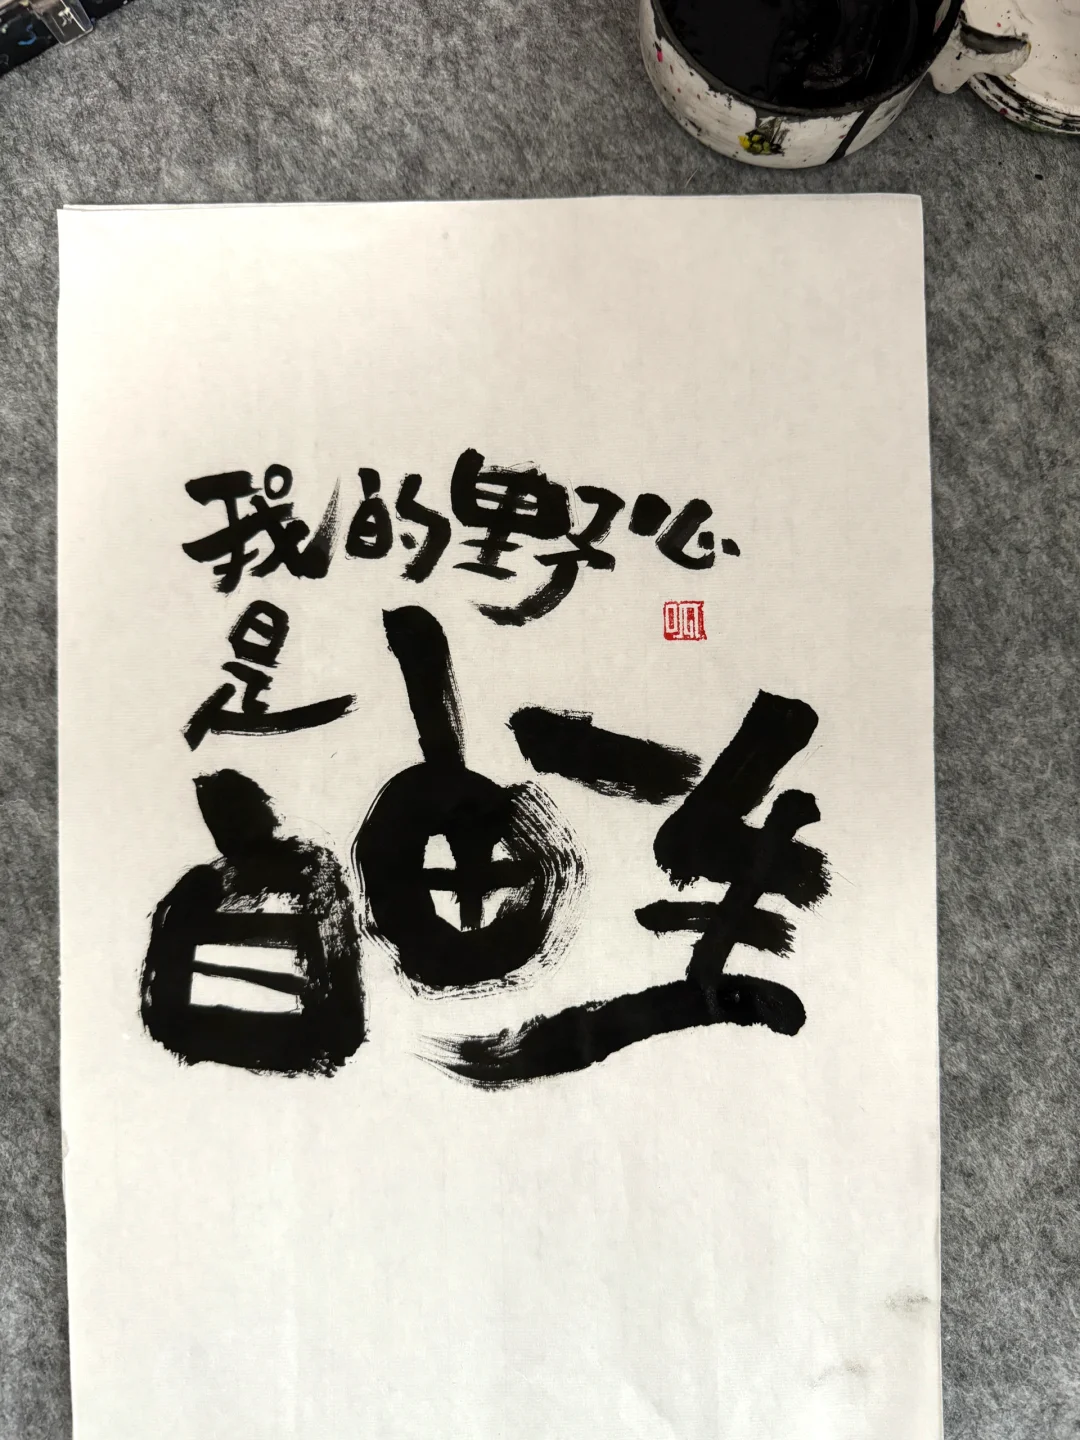 我的野心
是
自由一生